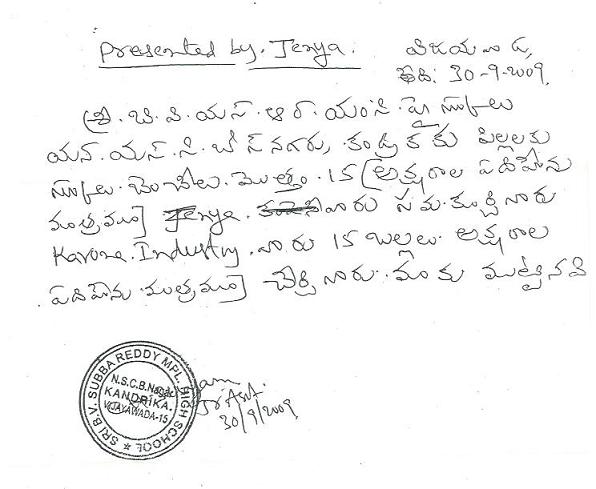 Presented by. Jenya.
విజయవాడ,
తేది: 30-9-2009.
శ్రీ. బి. వి. యస్. ఆర్. యంసి. హై స్కూలు
యన్. యస్. సి. బోస్ నగరు, కండ్రిక కు పిల్లలకు
స్కూలు. బెంచీలు. మొత్తం. 15 (అక్షరాల పదిహేను
మాత్రమే) Jenya. వారు సమకూర్చినారు
Karona. Industry. వారు 15 బల్లలు. అక్షరాల
పదిహేను మాత్రమే) చేర్చినారు. మాకు ముట్టినవి
SRI B.V. SUBBA REDDY MPL. HIGH SCHOOL
N.S.C.B. Nagar
KANDRIKA.
VIJAYAWADA-15.
30/9/2009